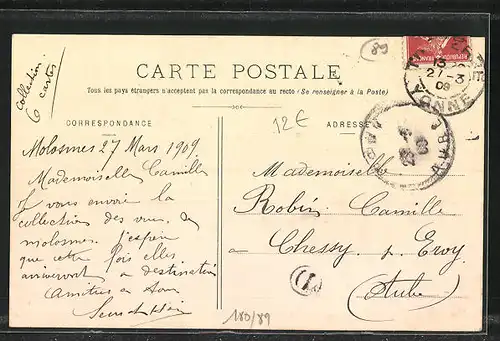 Collection
6 cartes
89
CARTE POSTALE
Tous les pays étrangers n'acceptent pas la correspondance au recto (Se renseigner à la Poste)
CORRESPONDANCE
12€
ADRESSE
RÉPUBLIQUE FRANÇAISE
27-3
09
YONNE
AUBE
Molosmes 27 Mars 1909.
Mademoiselle Camille
Je vous envoie la
collection des vues de
molosmes. J'espère
que cette fois elles
arriveront a destination
Amitiés a tous
Mademoiselle
Robin Camille
a Chessy p. Ervy
(Aube)
180/89